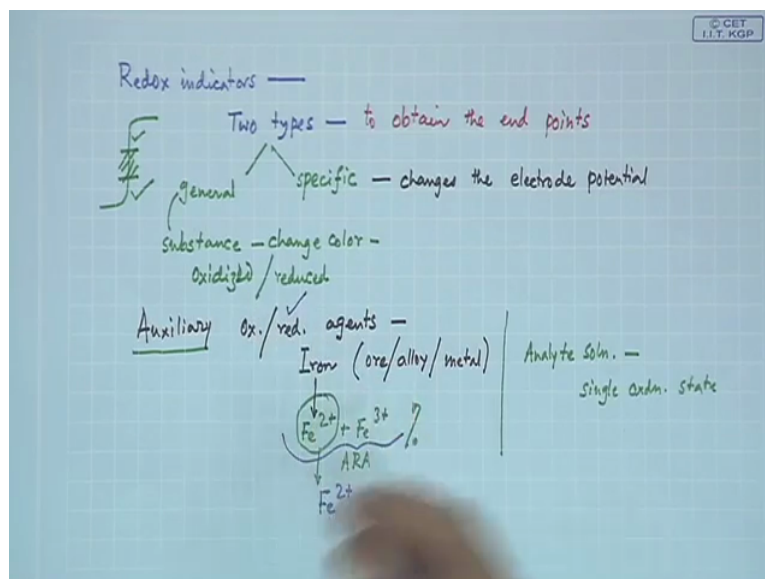 © CET
I.I.T. KGP
Redox indicators —
Two types — to obtain the end points
general
specific — changes the electrode potential
substance — change color —
oxidized / reduced
Auxiliary ox./red. agents —
Iron (ore/alloy/metal)
Fe2+ + Fe3+
ARA
Fe2+
Analyte soln. —
single oxdn. state